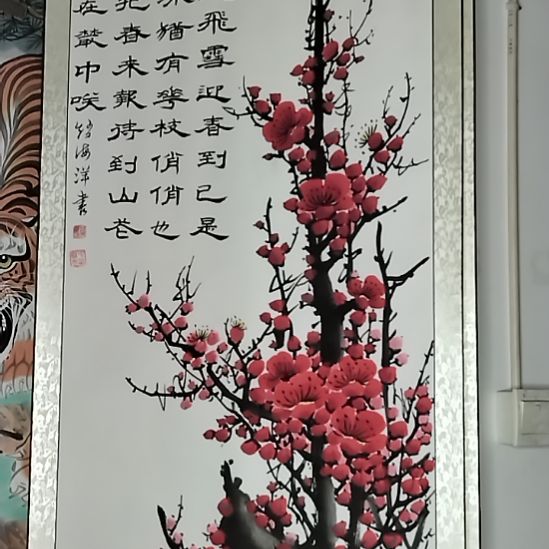 飛雪迎春到已是
猶有華枝俏俏也
把春来報待到山花
在叢中咲
海洋書